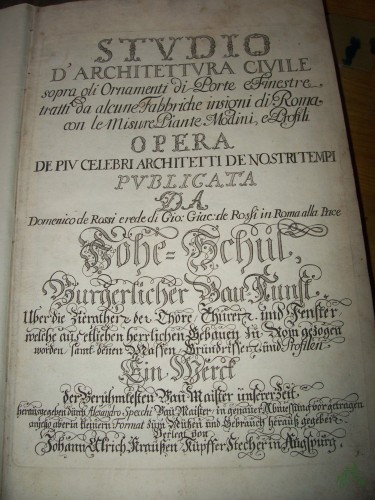 STVDIO
D'ARCHITETTVRA CIVILE
sopra gli Ornamenti di Porte e Finestre
tratti da alcune Fabbriche insigni di Roma
con le Misure Piante Modini, e Profili
OPERA
DE PIV CELEBRI ARCHITETTI DE NOSTRI TEMPI
PVBLICATA
DA
Domenico de Rossi erede di Gio: Giac: de Rossi in Roma alla Pace
Hohe-Schul,
Bürgerlicher Bau-Kunst.
Uber die Zierathen der Thöre Thüren und Fenster
welche aus etlichen herrlichen Gebäuen zu Rom gezogen
worden samt denen Massen Grundrissen und Profilen.
Ein Werck
der Berühmtesten Bau Maister unserer Zeit
herausgegeben durch Alexandro Specchi Bau Maister, in genauer Abmessung vorgetragen
anjezo aber in kleinern Format zum Nutzen und Gebrauch herauß gegeben
Verlegt von
Johann Ulrich Kraußen Kupffer Stecher in Augspurg